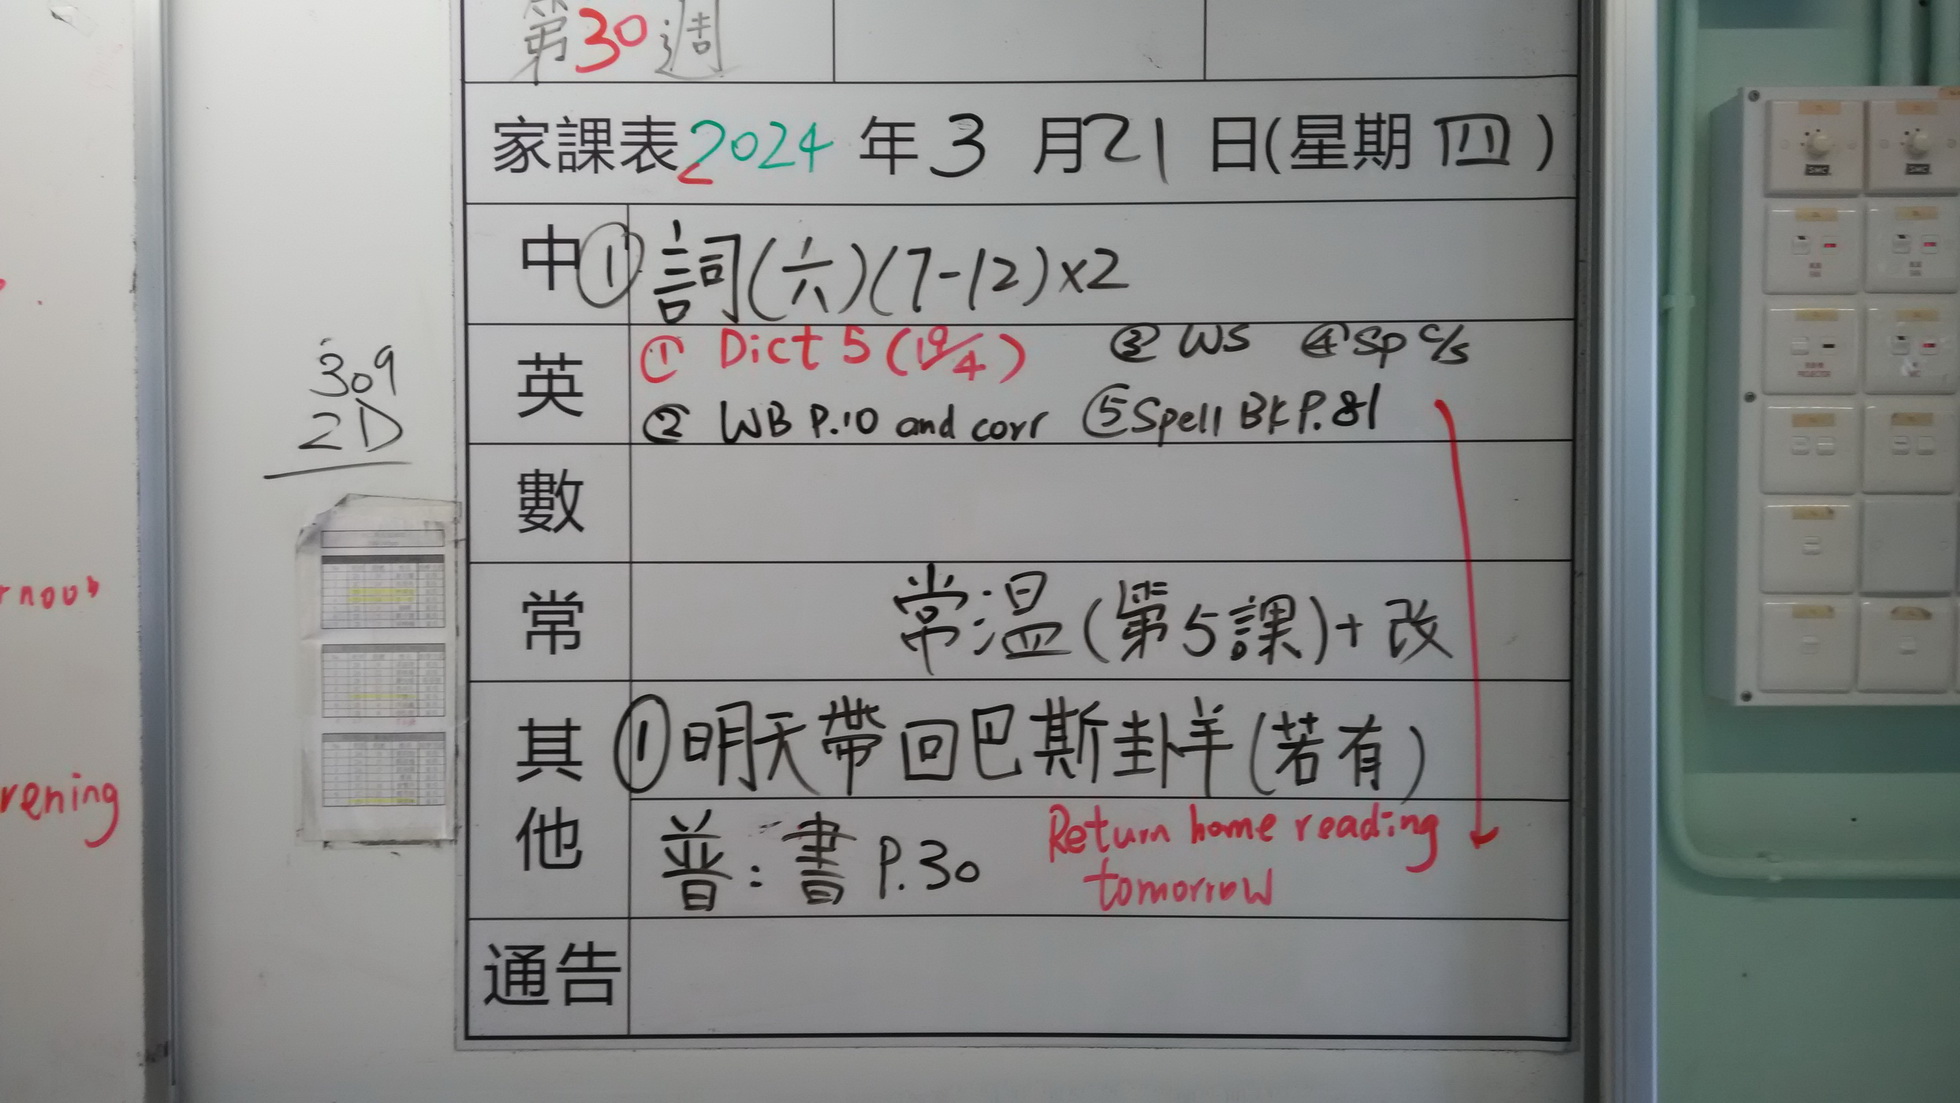 第30週
家課表2024年3月21日(星期四)
中 ①詞(六)(7-12)x2
英 ① Dict 5 (19/4) ③ WS ④ Sp c/s
② WB P.10 and corr ⑤ Spell BK P.81
數
常 常温(第5課)+改
其他 ①明天帶回巴斯卦羊(若有)
普:書 P.30 Return home reading
tomorrow
通告
309
2D
rening